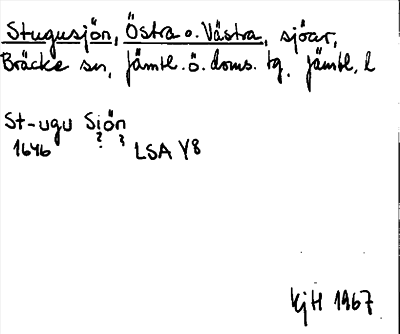 Stugusjön, Östra o. Västra, sjöar,
Bräcke sn, Jämtl. ö. doms. tg. Jämtl. l
St-ugu Siön
? ?
1646 LSA Y8
KjH 1967